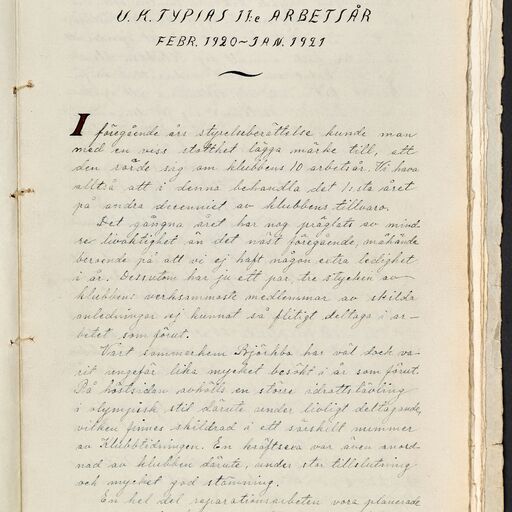 U. K. TYPIAS 11:e ARBETSÅR
FEBR. 1920~JAN. 1921
I föregående års styrelseberättelse kunde man
med en viss stolthet lägga märke till, att
den rörde sig om klubbens 10 arbetsår. Vi hava
alltså att i denna behandla det 1:sta året
på andra decenniet av klubbens tillvaro.
Det gångna året har nog präglats av mind-
re livaktighet än det näst föregående, måhända
beroende på att vi ej haft någon extra ledighet
i år. Dessutom har ju ett par, tre stycken av
klubbens verksammaste medlemmar av skilda
anledningar ej kunnat så flitigt deltaga i ar-
betet som förut.
Vårt sommarhem Björkhba har väl dock va-
rit ungefär lika mycket besökt i år som förut.
På höstsidan avhölls en större idrottstävling
i olympisk stil därute under livligt deltagande,
vilken finnes skildrad i ett särskilt nummer
av Klubbtidningen. En kräftseva var även anord-
nad av klubben därute, under stor tillslutning
och mycket god stämning.
En hel del reparationsarbeten voro planerade